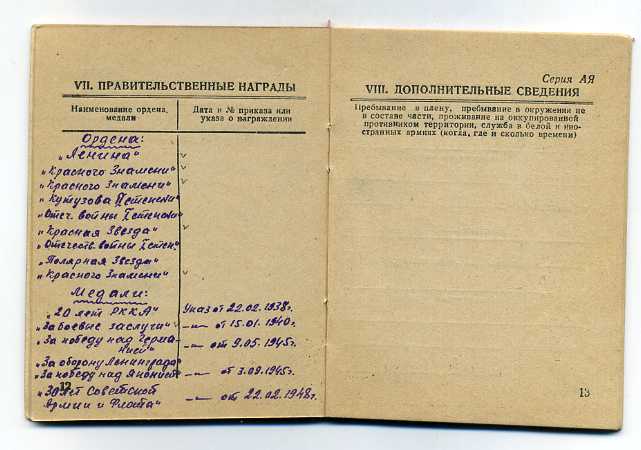 VII. ПРАВИТЕЛЬСТВЕННЫЕ НАГРАДЫ
Наименование ордена, медали
Дата и № приказа или указа о награждении
Ордена:
„Ленина"
„Красного Знамени"
„Красного Знамени"
„Кутузова II степени"
„Отеч. войны I степени"
„Красная Звезда"
„Отечеств. войны I степ."
„Полярная Звезда"
„Красного Знамени"
Медали:
„20 лет РККА" Указ от 22.02.1938г.
„За боевые заслуги" —„— от 15.01.1940г.
„За победу над Герма-
нией" —„— от 9.05.1945г.
„За оборону Ленинграда"
„За победу над Японией" —„— от 3.09.1945г.
„30 лет Советской
Армии и Флота" —„— от 22.02.1948г.
12
Серия АЯ
VIII. ДОПОЛНИТЕЛЬНЫЕ СВЕДЕНИЯ
Пребывание в плену, пребывание в окружении не
в составе части, проживание на оккупированной
противником территории, служба в белой и ино-
странных армиях (когда, где и сколько времени)
13